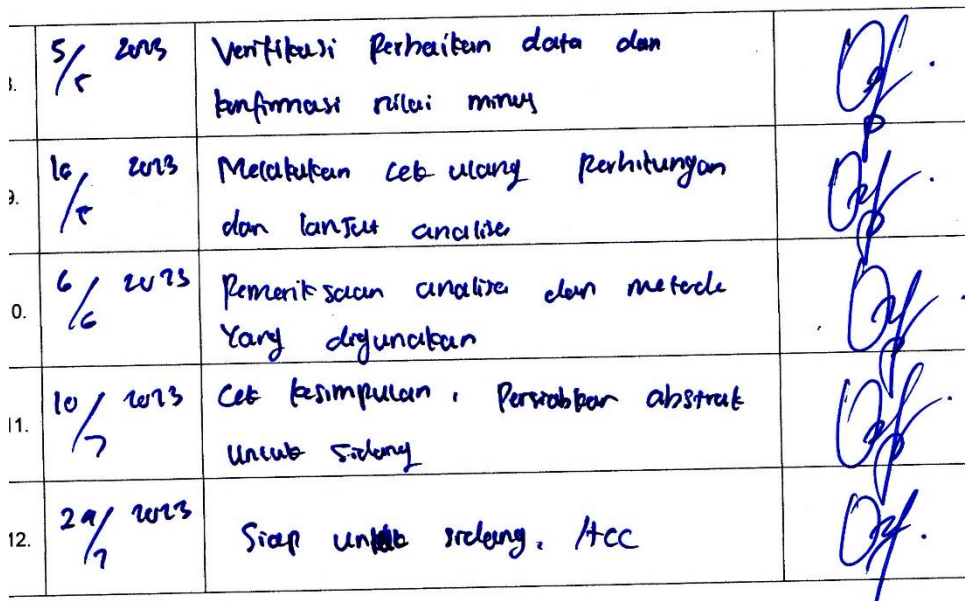 8. 5/5 2023 Verifikasi Perbaikan data dan
konfirmasi nilai minus
9. 16/5 2023 Melakukan cek ulang Perhitungan
dan lanjut analisa
0. 6/6 2023 Pemeriksaan analisa dan metode
Yang digunakan
11. 10/7 2023 Cek kesimpulan, Persiapkan abstrak
untuk Sidang
12. 29/7 2023 Siap untuk sidang. Acc